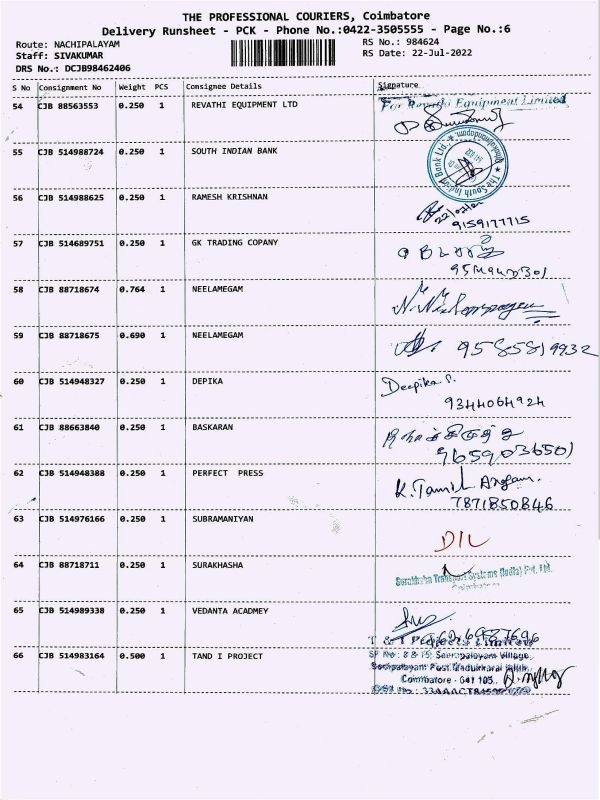 THE PROFESSIONAL COURIERS, Coimbatore
Delivery Runsheet - PCK - Phone No.:0422-3505555 - Page No.:6
Route: NACHIPALAYAM RS No.: 984624
Staff: SIVAKUMAR RS Date: 22-Jul-2022
DRS No.: DCJB98462406
S No Consignment No Weight PCS Consignee Details Signature
54 CJB 88563553 0.250 1 REVATHI EQUIPMENT LTD For Revathi Equipment Limited
55 CJB 514988724 0.250 1 SOUTH INDIAN BANK The South Indian Bank Ltd.
56 CJB 514988625 0.250 1 RAMESH KRISHNAN
9159177715
57 CJB 514689751 0.250 1 GK TRADING COPANY
58 CJB 88718674 0.764 1 NEELAMEGAM
59 CJB 88718675 0.690 1 NEELAMEGAM 9585819932
60 CJB 514948327 0.250 1 DEPIKA Deepika P.
9344064924
61 CJB 88663840 0.250 1 BASKARAN
9659036501
62 CJB 514948388 0.250 1 PERFECT PRESS K. Tamil
7871850846
63 CJB 514976166 0.250 1 SUBRAMANIYAN
D/L
64 CJB 88718711 0.250 1 SURAKHASHA
Surakshha Transport Systems (India) Pvt. Ltd.
65 CJB 514989338 0.250 1 VEDANTA ACADMEY
T & I Projects Limited
66 CJB 514983164 0.500 1 TAND I PROJECT SF No : 8 & 15, Seerapalayam Village,
Seerapalayam Post, Madukkarai
Coimbatore - 641 105.